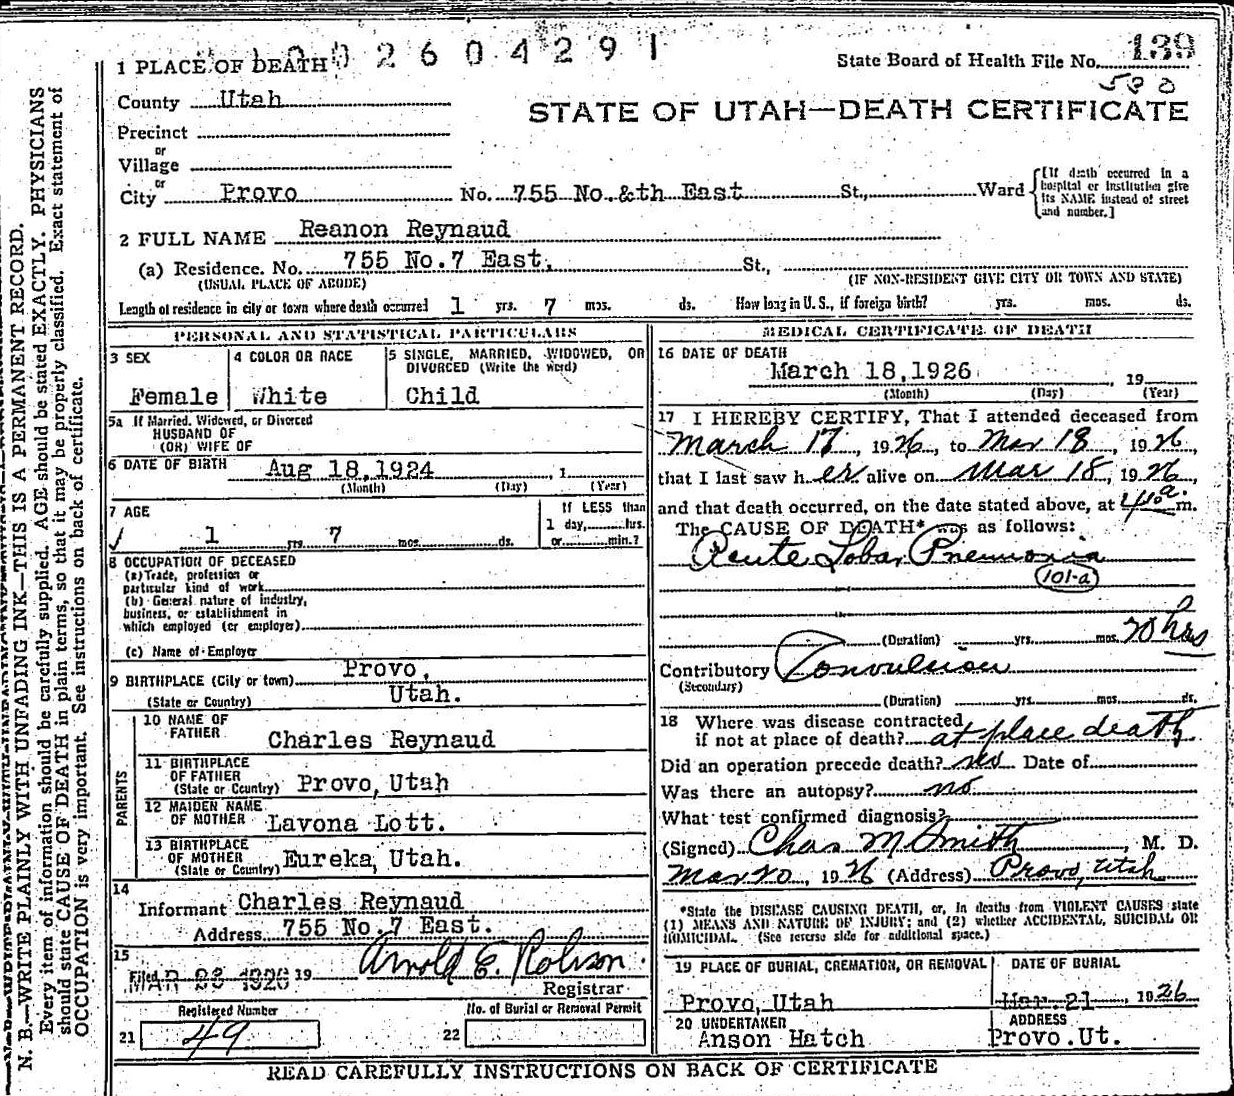 2604291
State Board of Health File No. 139
530
1 PLACE OF DEATH
County Utah
STATE OF UTAH—DEATH CERTIFICATE
Precinct
or
Village
or
City Provo No. 755 No. &th East St., Ward
[If death occurred in a hospital or institution give its NAME instead of street and number.]
2 FULL NAME Reanon Reynaud
(a) Residence. No. 755 No. 7 East, St.,
(USUAL PLACE OF ABODE) (IF NON-RESIDENT GIVE CITY OR TOWN AND STATE)
Length of residence in city or town where death occurred 1 yrs. 7 mos. ds. How long in U. S., if foreign birth? yrs. mos. ds.
PERSONAL AND STATISTICAL PARTICULARS
3 SEX
Female
4 COLOR OR RACE
White
5 SINGLE, MARRIED, WIDOWED, OR
DIVORCED (Write the word)
Child
5a If Married, Widowed, or Divorced
HUSBAND OF
(OR) WIFE OF
6 DATE OF BIRTH Aug 18, 1924, 1
(Month) (Day) (Year)
7 AGE
1 yrs. 7 mos. ds.
If LESS than
1 day, hrs.
or min.?
8 OCCUPATION OF DECEASED
(a) Trade, profession or
particular kind of work
(b) General nature of industry,
business, or establishment in
which employed (or employer)
(c) Name of Employer
9 BIRTHPLACE (City or town) Provo,
(State or Country) Utah.
PARENTS
10 NAME OF
FATHER
Charles Reynaud
11 BIRTHPLACE
OF FATHER
(State or Country) Provo, Utah
12 MAIDEN NAME
OF MOTHER Lavona Lott.
13 BIRTHPLACE
OF MOTHER
(State or Country) Eureka, Utah.
14
Informant Charles Reynaud
Address 755 No. 7 East.
15
Filed MAR 23 1926 19 Arnold E. Robison.
Registrar
Registered Number
21 49
No. of Burial or Removal Permit
22
MEDICAL CERTIFICATE OF DEATH
16 DATE OF DEATH
March 18, 1926, 19
(Month) (Day) (Year)
17 I HEREBY CERTIFY, That I attended deceased from
March 17, 1926, to Mar 18, 1926,
that I last saw h er alive on Mar 18, 1926,
and that death occurred, on the date stated above, at a. m.
The CAUSE OF DEATH* was as follows:
Acute Lobar Pneumonia
101-a
(Duration) yrs. mos. 20 hrs
Contributory Convulsion
(Secondary)
(Duration) yrs. mos. ds.
18 Where was disease contracted
if not at place of death? at place death
Did an operation precede death? no Date of
Was there an autopsy? no
What test confirmed diagnosis?
(Signed) Chas M Smith, M. D.
Mar 20, 1926 (Address) Provo, Utah
*State the DISEASE CAUSING DEATH, or, in deaths from VIOLENT CAUSES state
(1) MEANS AND NATURE OF INJURY; and (2) whether ACCIDENTAL, SUICIDAL OR
HOMICIDAL. (See reverse side for additional space.)
19 PLACE OF BURIAL, CREMATION, OR REMOVAL
Provo, Utah
DATE OF BURIAL
Mar. 21, 1926
20 UNDERTAKER
Anson Hatch
ADDRESS
Provo.Ut.
READ CAREFULLY INSTRUCTIONS ON BACK OF CERTIFICATE
N. B.—WRITE PLAINLY WITH UNFADING INK—THIS IS A PERMANENT RECORD.
Every item of information should be carefully supplied. AGE should be stated EXACTLY. PHYSICIANS
should state CAUSE OF DEATH in plain terms, so that it may be properly classified. Exact statement of
OCCUPATION is very important. See instructions on back of certificate.